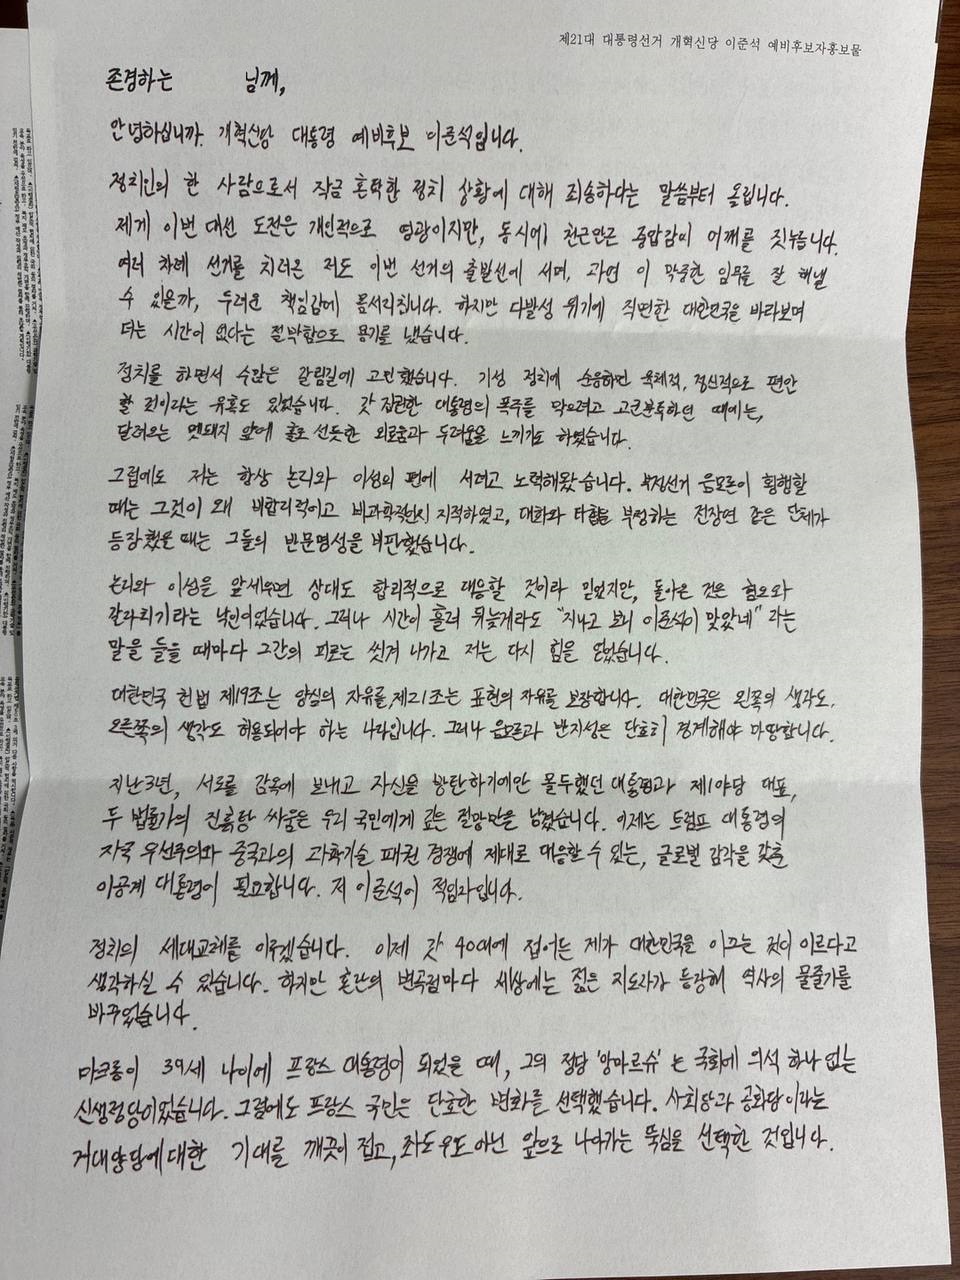 제21대 대통령선거 개혁신당 이준석 예비후보자홍보물
존경하는 님께,
안녕하십니까. 개혁신당 대통령 예비후보 이준석입니다.
정치인의 한 사람으로서 작금 혼탁한 정치 상황에 대해 죄송하다는 말씀부터 올립니다.
제게 이번 대선 도전은 개인적으로 영광이지만, 동시에 천근만근 중압감이 어깨를 짓누릅니다.
여러 차례 선거를 치러온 저도 이번 선거의 출발선에 서며, 과연 이 막중한 임무를 잘 해낼
수 있을까, 두려운 책임감에 몸서리칩니다. 하지만 다발성 위기에 직면한 대한민국을 바라보며
더는 시간이 없다는 절박함으로 용기를 냈습니다.
정치를 하면서 수많은 갈림길에 고민했습니다. 기성 정치에 순응하면 육체적, 정신적으로 편안
할 것이라는 유혹도 있었습니다. 갓 집권한 대통령의 폭주를 막으려고 고군분투하던 때에는,
달려오는 멧돼지 앞에 홀로 선듯한 외로움과 두려움을 느끼기도 하였습니다.
그럼에도 저는 항상 논리와 이성의 편에 서려고 노력해왔습니다. 부정선거 음모론이 횡행할
때는 그것이 왜 비합리적이고 비과학적인지 지적하였고, 대화와 타협을 부정하는 전장연 같은 단체가
등장했을 때는 그들의 반문명성을 비판했습니다.
논리와 이성을 앞세우면 상대도 합리적으로 대응할 것이라 믿었지만, 돌아온 것은 혐오와
갈라치기라는 낙인이었습니다. 그러나 시간이 흘러 뒤늦게라도 "지나고 보니 이준석이 맞았네" 라는
말을 들을 때마다 그간의 피로는 씻겨 나가고 저는 다시 힘을 얻었습니다.
대한민국 헌법 제19조는 양심의 자유를, 제21조는 표현의 자유를 보장합니다. 대한민국은 왼쪽의 생각도,
오른쪽의 생각도 허용되어야 하는 나라입니다. 그러나 음모론과 반지성은 단호히 경계해야 마땅합니다.
지난 3년, 서로를 감옥에 보내고 자신을 방탄하기에만 몰두했던 대통령과 제1야당 대표,
두 법률가의 진흙탕 싸움은 우리 국민에게 깊은 절망만을 남겼습니다. 이제는 트럼프 대통령의
자국 우선주의와 중국과의 과학기술 패권 경쟁에 제대로 대응할 수 있는, 글로벌 감각을 갖춘
이공계 대통령이 필요합니다. 저 이준석이 적임자입니다.
정치의 세대교체를 이루겠습니다. 이제 갓 40대에 접어든 제가 대한민국을 이끄는 것이 이르다고
생각하실 수 있습니다. 하지만 혼란의 변곡점마다 세상에는 젊은 지도자가 등장해 역사의 물줄기를
바꾸었습니다.
마크롱이 39세 나이에 프랑스 대통령이 되었을 때, 그의 정당 '앙마르슈' 는 국회에 의석 하나 없는
신생정당이었습니다. 그럼에도 프랑스 국민은 단호한 변화를 선택했습니다. 사회당과 공화당이라는
거대양당에 대한 기대를 깨끗이 접고, 좌도 우도 아닌 앞으로 나아가는 뚝심을 선택한 것입니다.